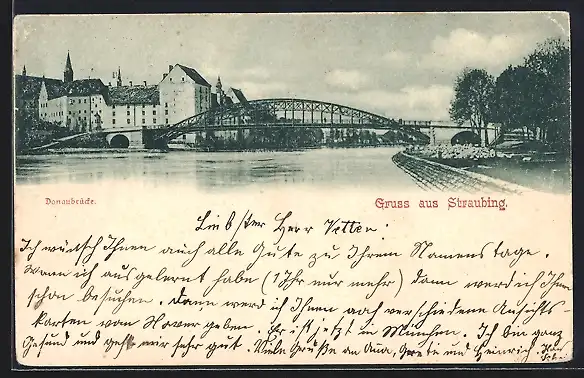 Donaubrücke.
Gruss aus Straubing.
Liebster Herr Vetter!
Ich wünsch Ihnen auch alle Gute zu Ihrem Namenstage.
Wann ich ausgelernt habe (1 Jhr nur mehr) dann werd ich Ihnen
schon besuchen. Dann werd ich Ihnen noch verschiedene Ansichts-
karten von Hower geben. Er ist jetzt in München. Ich bin ganz
Gesund und geht mir sehr gut. Viele Grüße an Anna, Grete und Heinrich.